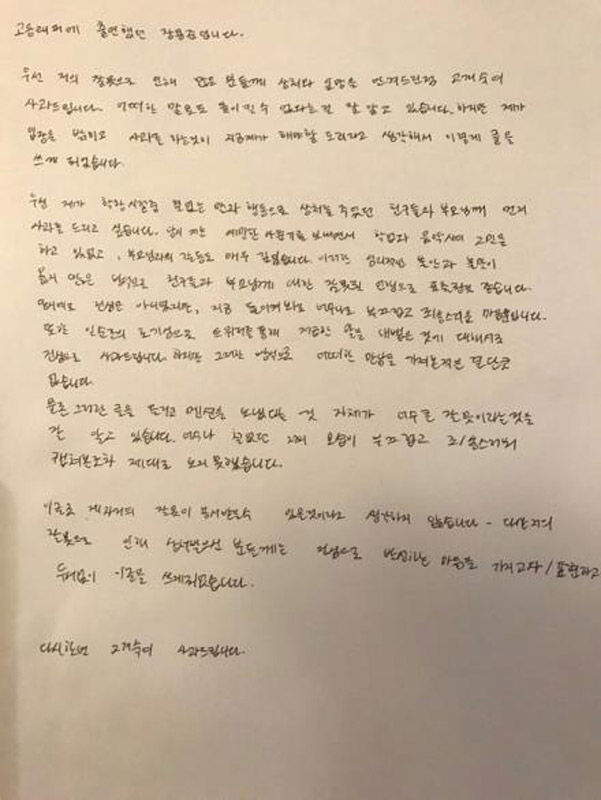 고등래퍼에 출연했던 장용준입니다.
우선 저의 잘못으로 인해 많은 분들께 상처와 실망을 안겨드린점 고개숙여
사과드립니다. 어떠한 말로도 돌이킬 수 없다는걸 잘 알고 있습니다. 하지만 제가
입장을 밝히고 사과를 하는것이 지금제가 해야할 도리라고 생각해서 이렇게 글을
쓰게 되었습니다.
우선 제가 학창시절중 철없는 말과 행동으로 상처를 주었던 친구들과 부모님께 먼저
사과를 드리고 싶습니다. 당시 저는 예민한 사춘기를 보내면서 학업과 음악사이 고민을
하고 있었고, 부모님과의 갈등도 매우 깊었습니다. 이러한 심리적인 불안과 불만이
옳지 않은 방식으로 친구들과 부모님께 대한 잘못된 언행으로 표출된것 같습니다.
절대로 진심은 아니었지만, 지금 돌이켜봐도 너무나 부끄럽고 죄송스러운 마음뿐입니다.
또한 일순간의 호기심으로 트위터를 통해 저급한 말을 내뱉은 것에 대해서도
진심으로 사과드립니다. 하지만 그러한 방식으로 어떠한 만남을 가져본적은 결단코
없습니다.
물론 그러한 글을 뜨겁고 멘션을 보냈다는 것 자체가 너무 큰 잘못이라는것을
잘 알고 있습니다. 너무나 철없던 그때 모습이 부끄럽고 죄송스러워
캡쳐본조차 제대로 보지 못했습니다.
이글로 제 과거의 잘못이 용서받을수 있을것이라고 생각하지 않습니다. 다만 저의
잘못으로 인해 실망받으신 분들께는 진심으로 반성하는 마음을 가지고자/표현하고
두서없이 이글을 쓰게되었습니다.
다시한번 고개숙여 사과드립니다.